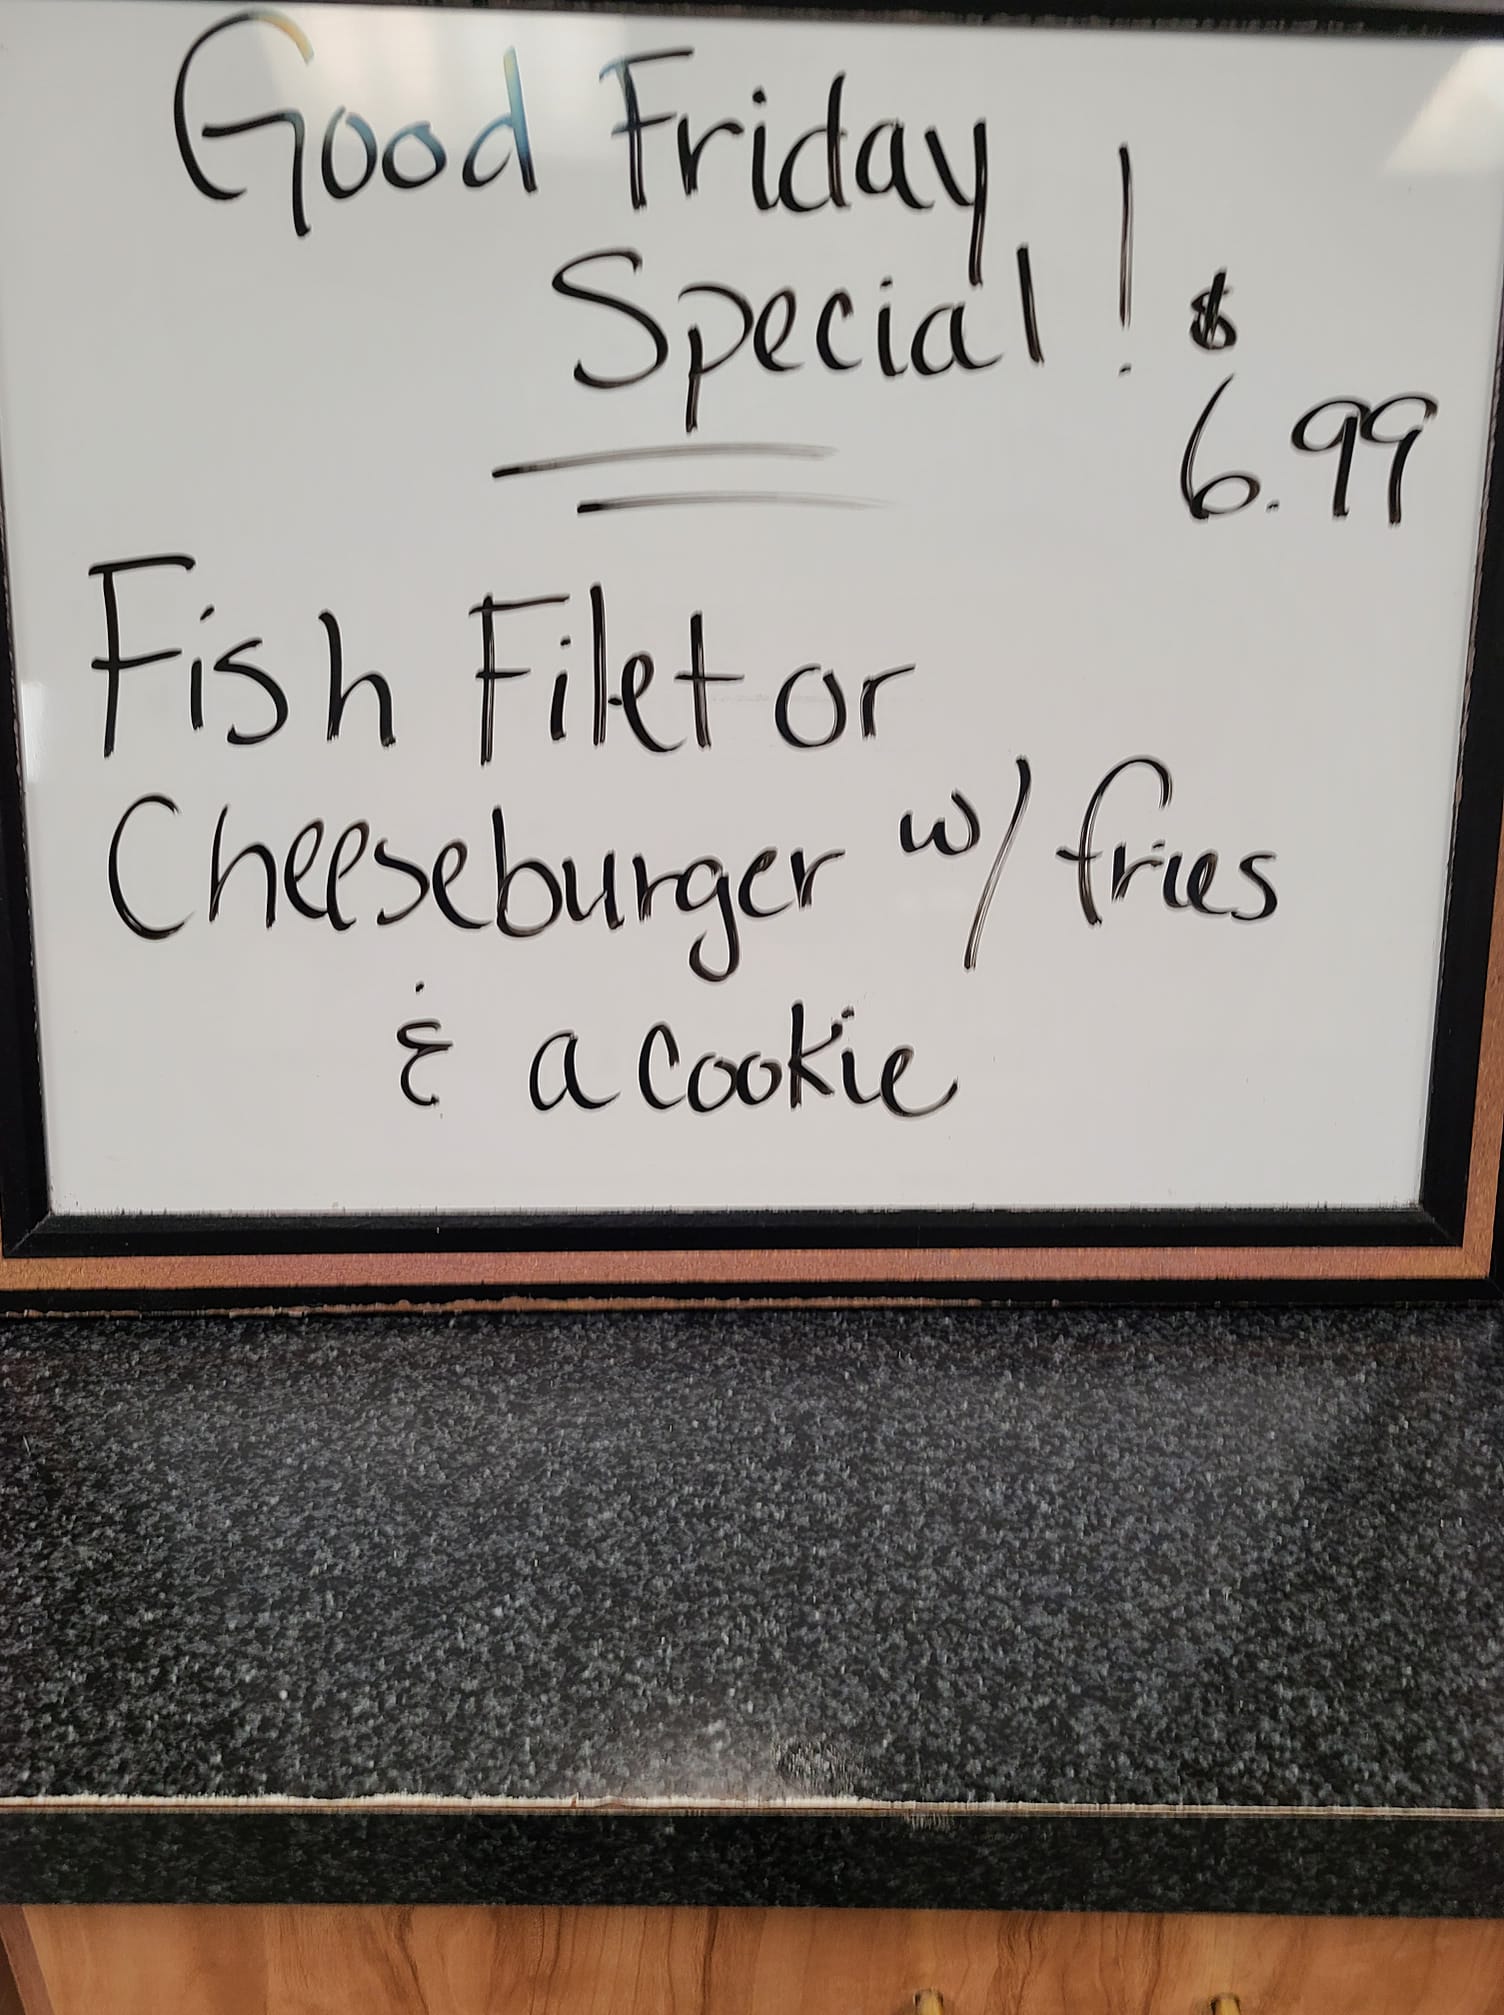 Good Friday
Special! $
6.99
Fish Filet or
Cheeseburger w/ fries
& a cookie